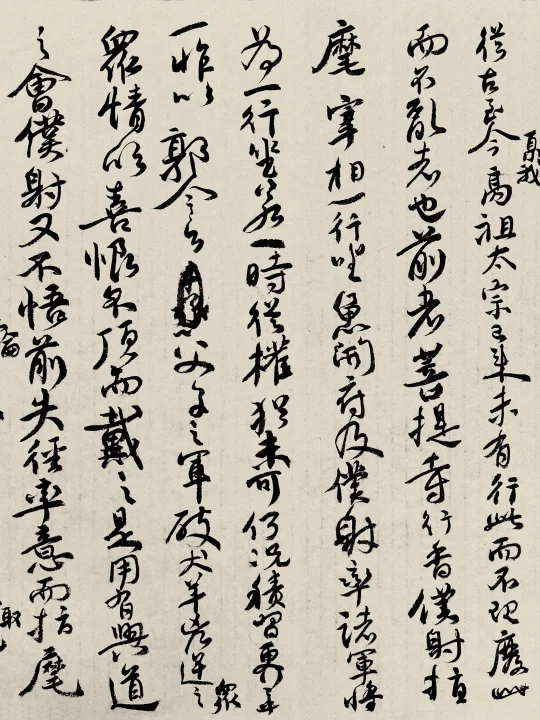 從古至今曁我高祖太宗已來未有行此而不理廢此
而不亂者也前者菩提寺行香僕射指
麾宰相一行坐魚開府及僕射率諸軍將
為一行坐若一時從權猶未可何況積習更行
一昨以郭令公父子之軍破犬羊凶逆之眾
眾情欣喜恨不頂而戴之是用有興道
之會僕射又不悟前失徑率意而指麾